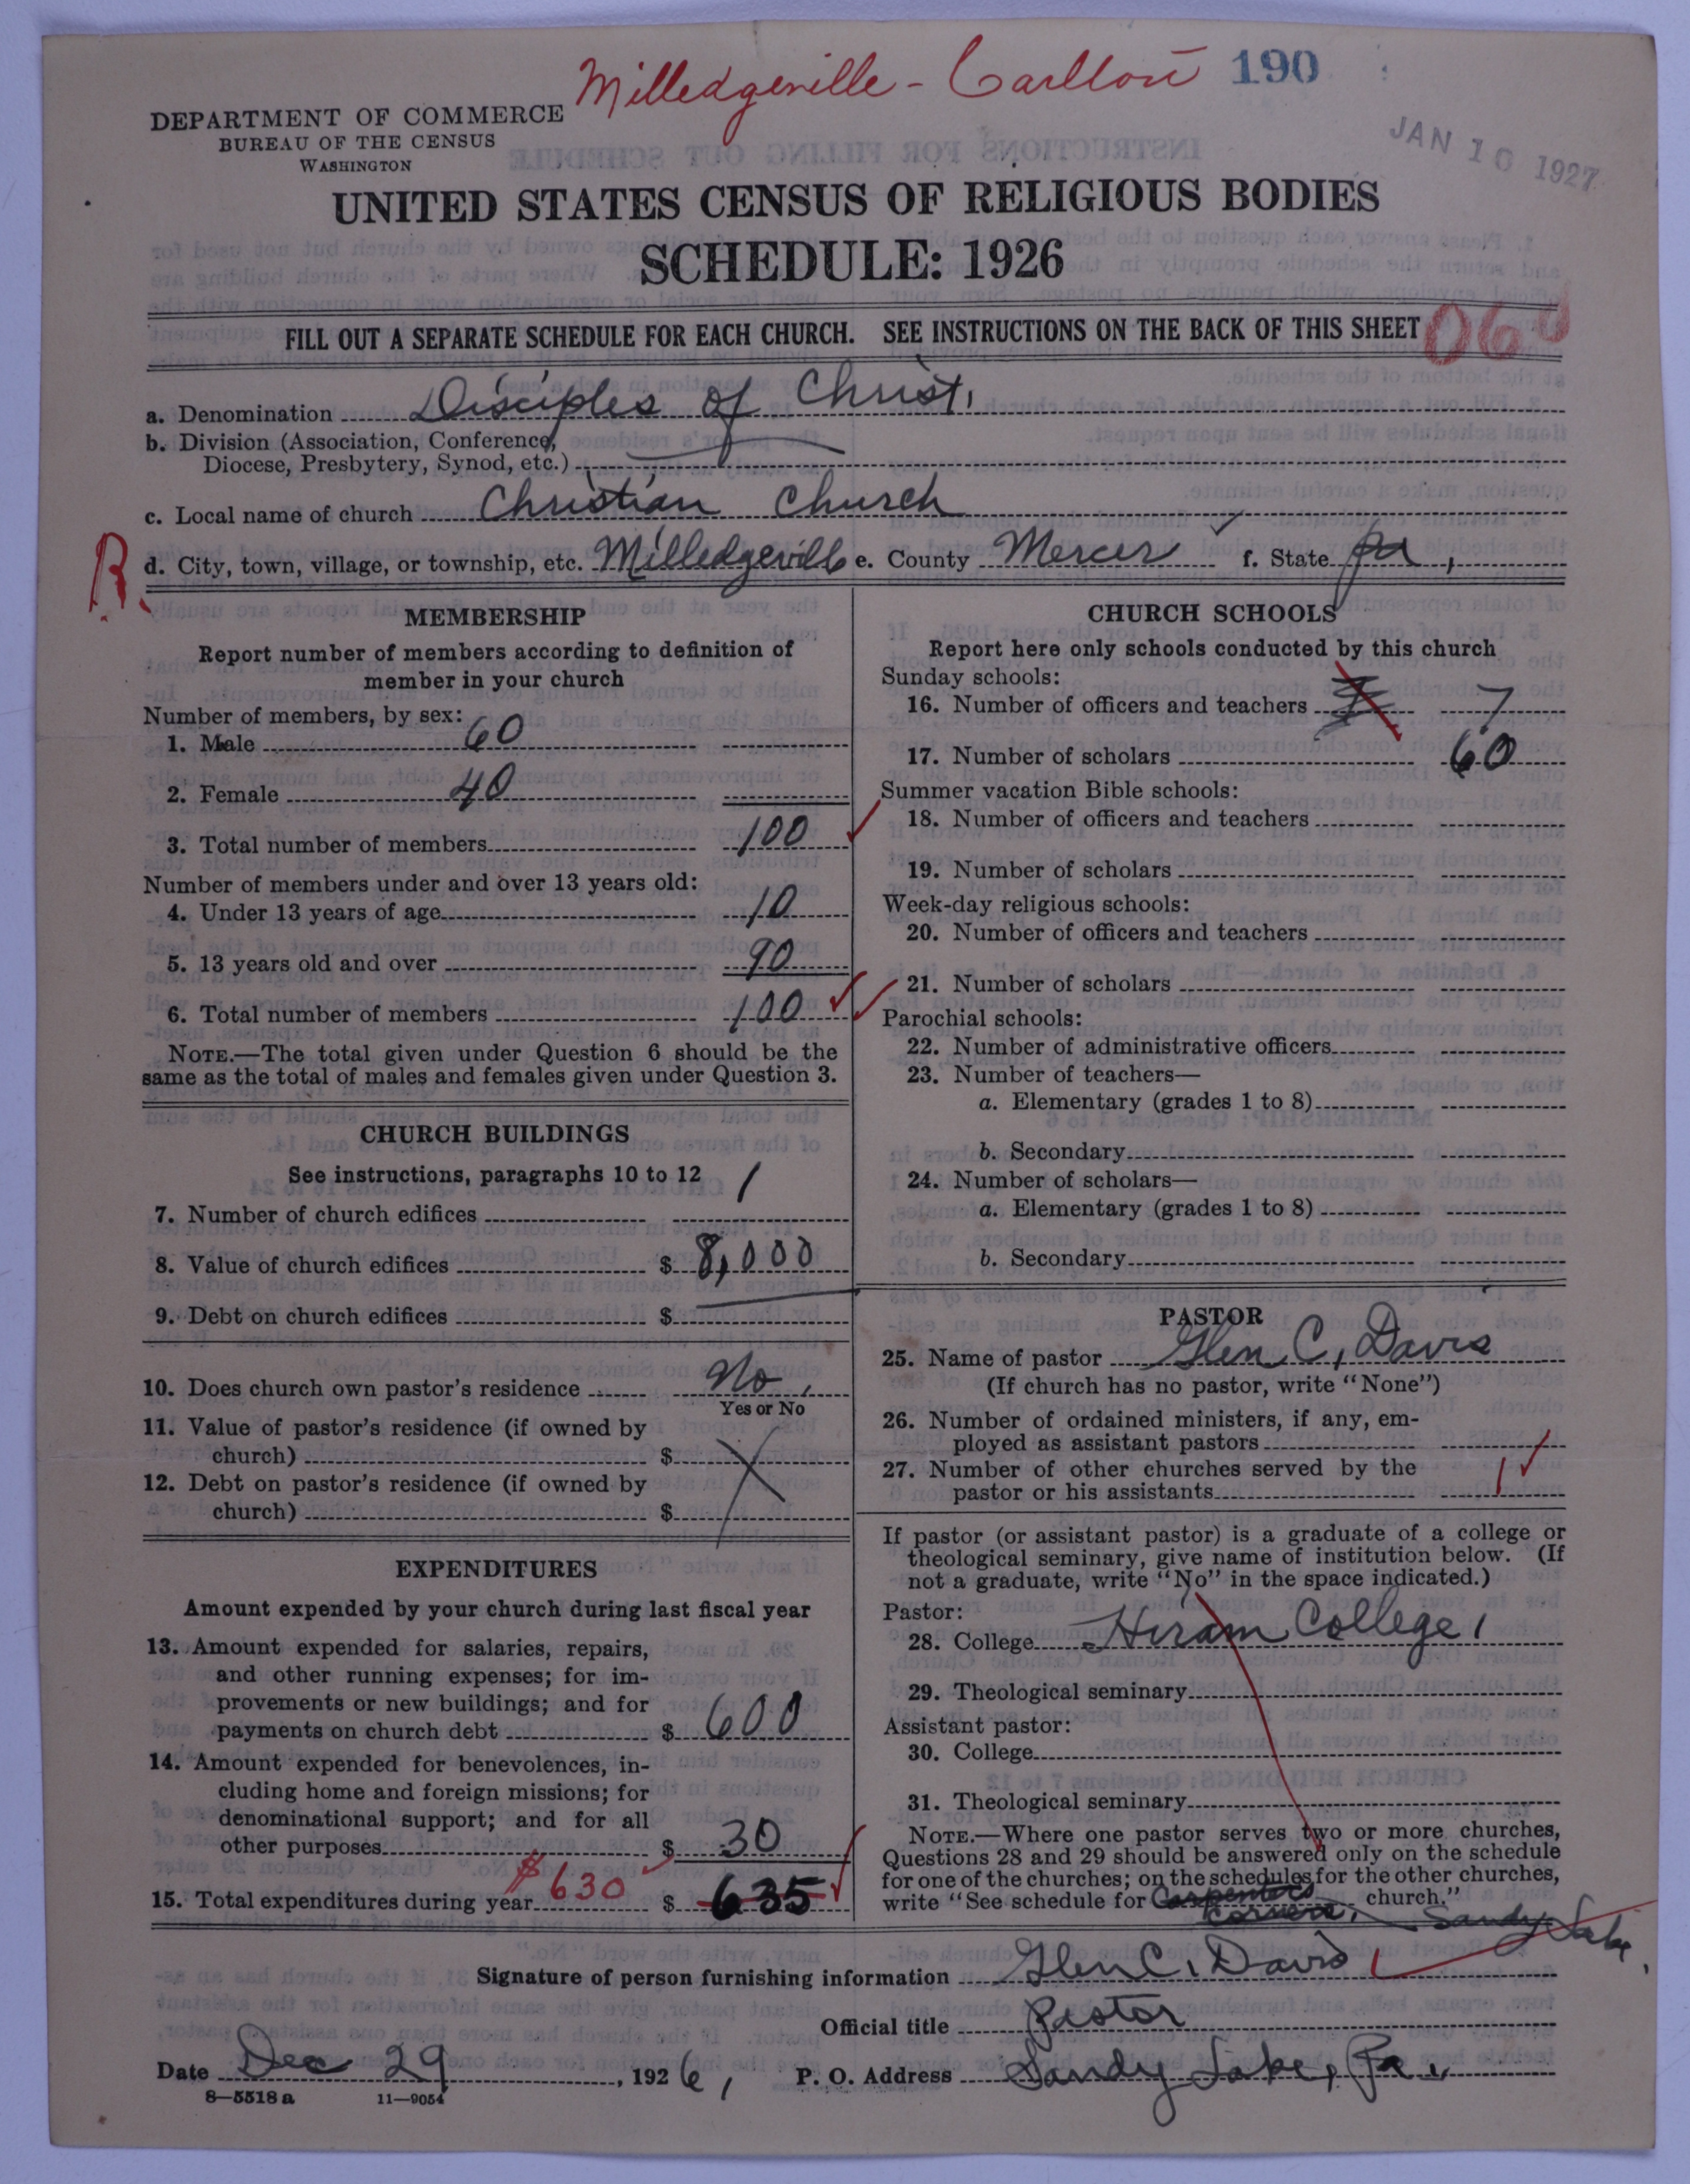 Milledgeville - Carlton 190
JAN 10 1927
DEPARTMENT OF COMMERCE
BUREAU OF THE CENSUS
WASHINGTON
UNITED STATES CENSUS OF RELIGIOUS BODIES
SCHEDULE: 1926
FILL OUT A SEPARATE SCHEDULE FOR EACH CHURCH. SEE INSTRUCTIONS ON THE BACK OF THIS SHEET
a. Denomination Disciples of Christ.
b. Division (Association, Conference,
Diocese, Presbytery, Synod, etc.)
c. Local name of church Christian Church
R. d. City, town, village, or township, etc. Milledgeville e. County Mercer f. State Pa,
MEMBERSHIP
Report number of members according to definition of
member in your church
Number of members, by sex:
1. Male 60
2. Female 40
3. Total number of members 100
Number of members under and over 13 years old:
4. Under 13 years of age 10
5. 13 years old and over 90
6. Total number of members 100
NOTE.—The total given under Question 6 should be the
same as the total of males and females given under Question 3.
CHURCH BUILDINGS
See instructions, paragraphs 10 to 12
7. Number of church edifices 1
8. Value of church edifices $ 8,000
9. Debt on church edifices $
10. Does church own pastor's residence No,
Yes or No
11. Value of pastor's residence (if owned by
church) $
12. Debt on pastor's residence (if owned by
church) $
EXPENDITURES
Amount expended by your church during last fiscal year
13. Amount expended for salaries, repairs,
and other running expenses; for im-
provements or new buildings; and for
payments on church debt $ 600
14. Amount expended for benevolences, in-
cluding home and foreign missions; for
denominational support; and for all
other purposes $ 30
$630
15. Total expenditures during year $ 635
CHURCH SCHOOLS
Report here only schools conducted by this church
Sunday schools:
16. Number of officers and teachers 7
17. Number of scholars 60
Summer vacation Bible schools:
18. Number of officers and teachers
19. Number of scholars
Week-day religious schools:
20. Number of officers and teachers
21. Number of scholars
Parochial schools:
22. Number of administrative officers
23. Number of teachers—
a. Elementary (grades 1 to 8)
b. Secondary
24. Number of scholars—
a. Elementary (grades 1 to 8)
b. Secondary
PASTOR
25. Name of pastor Glen C. Davis
(If church has no pastor, write "None")
26. Number of ordained ministers, if any, em-
ployed as assistant pastors
27. Number of other churches served by the
pastor or his assistants 1
If pastor (or assistant pastor) is a graduate of a college or
theological seminary, give name of institution below. (If
not a graduate, write "No" in the space indicated.)
Pastor:
28. College Hiram College,
29. Theological seminary
Assistant pastor:
30. College
31. Theological seminary
NOTE.—Where one pastor serves two or more churches,
Questions 28 and 29 should be answered only on the schedule
for one of the churches; on the schedules for the other churches,
write "See schedule for Carpenters church."
Corners, Sandy Lake.
Signature of person furnishing information Glen C. Davis
Official title Pastor
Date Dec 29, 1926, P. O. Address Sandy Lake, Pa.,
8—5518 a 11—9054